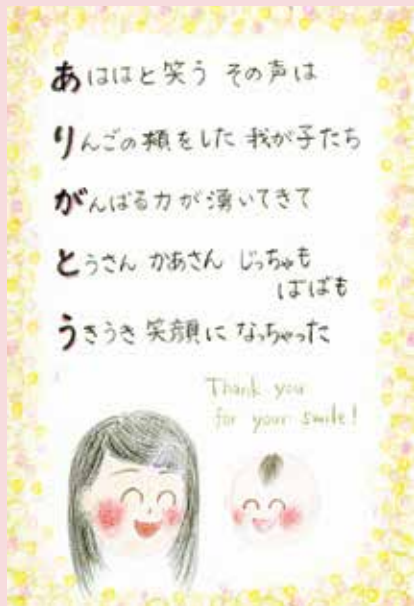 あははと笑う その声は
りんごの頬をした 我が子たち
がんばる力が湧いてきて
とうさん かあさん じっちゃも
ばばも
うきうき笑顔に なっちゃった
Thank you
for your smile!